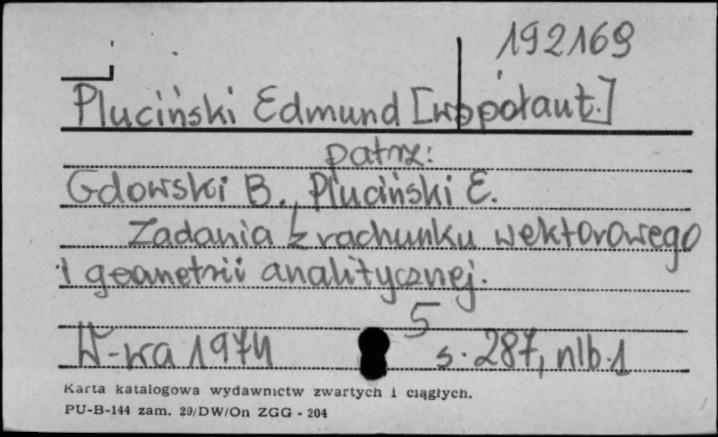 192169
Pluciński Edmund [współaut.]
patrz:
Gdowski B., Pluciński E.
Zadania z rachunku wektorowego
i geometrii analitycznej.
5
W-wa 1974 s. 287, nlb. 1
Karta katalogowa wydawnictw zwartych i ciągłych.
PU-B-144 zam. 29/DW/On ZGG - 204